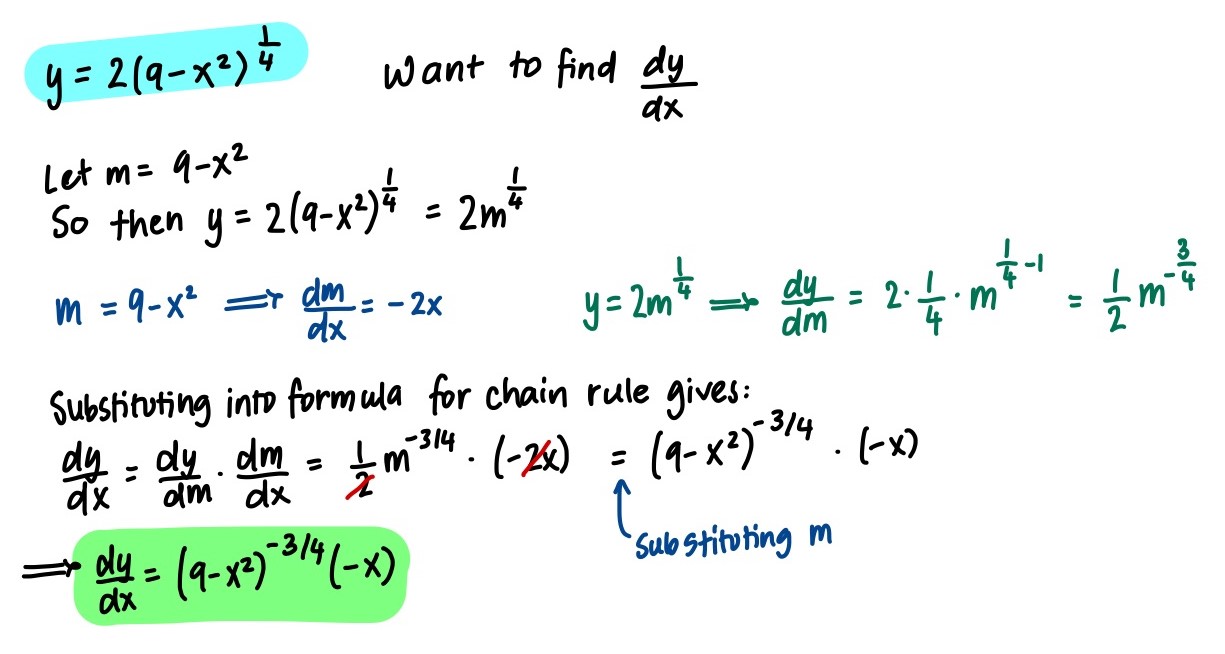 y = 2(9-x²)^{1/4} Want to find dy/dx
Let m = 9-x²
So then y = 2(9-x²)^{1/4} = 2m^{1/4}
m = 9-x² ⟹ dm/dx = -2x y = 2m^{1/4} ⟹ dy/dm = 2·1/4·m^{1/4-1} = 1/2 m^{-3/4}
Substituting into formula for chain rule gives:
dy/dx = dy/dm · dm/dx = 1/2 m^{-3/4} · (-2x) = (9-x²)^{-3/4} · (-x)
Substituting m
⟹ dy/dx = (9-x²)^{-3/4} (-x)